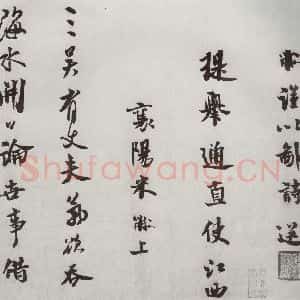 黻謹以鄙詩送
提舉通直使江西
襄陽米黻上
三吳有丈夫氣欲吞
海水開口論世事借
Shufawang.CN